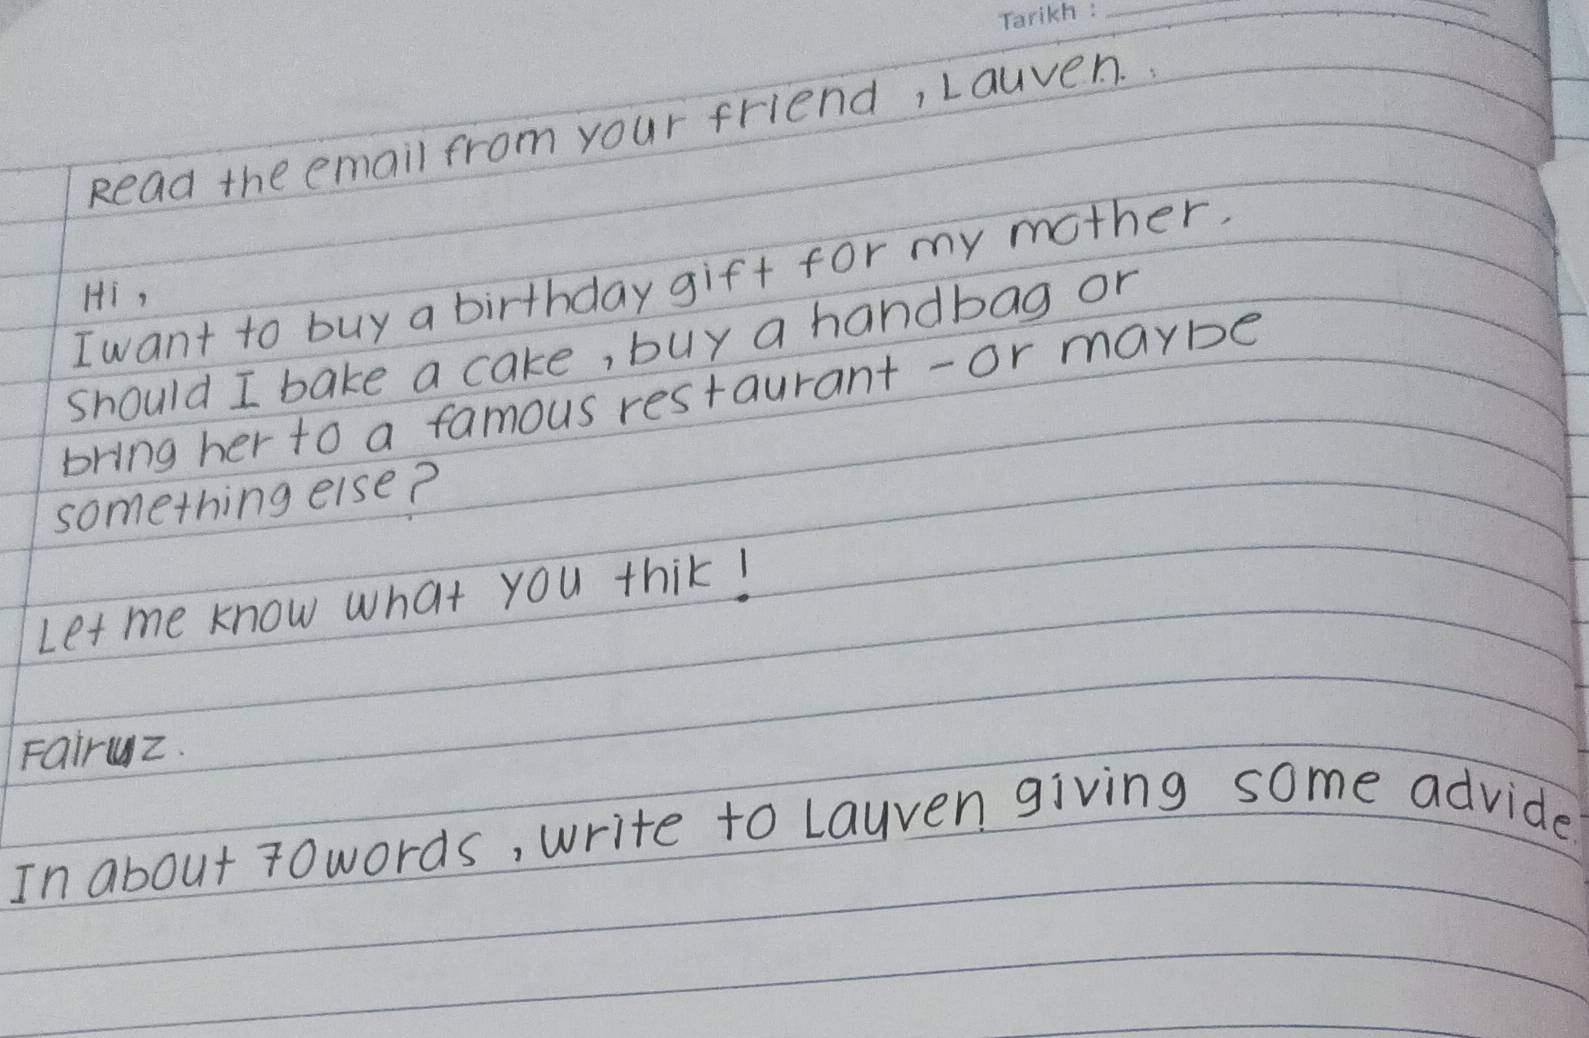 Tarikh :
Read the email from your friend, Lauven.
Hi,
I want to buy a birthday gift for my mother.
should I bake a cake, buy a handbag or
bring her to a famous restaurant - or maybe
something else?
Let me know what you thik!
Fairuz.
In about 70 words, write to Lauven giving some advide.